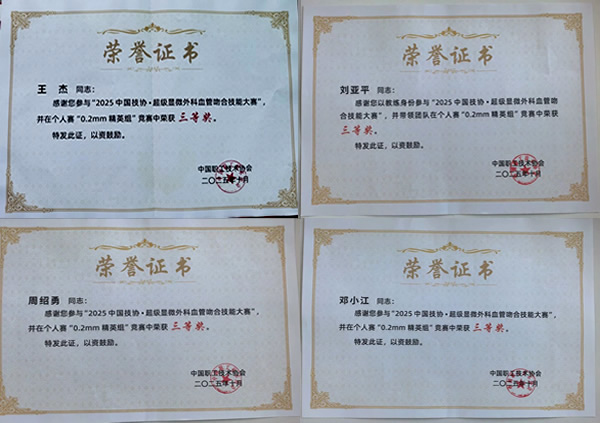 荣誉证书
王 杰 同志：
感谢您参与“2025 中国技协·超级显微外科血管吻合技能大赛”，
并在个人赛“0.2mm 精英组”竞赛中荣获 三等奖。
特发此证，以资鼓励。
中国职工技术协会
二〇二五年十月
荣誉证书
刘亚平 同志：
感谢您以教练身份参与“2025 中国技协·超级显微外科血管吻
合技能大赛”，并带领团队在个人赛“0.2mm 精英组”竞赛中荣获
三等奖。
特发此证，以资鼓励。
中国职工技术协会
二〇二五年十月
荣誉证书
周绍勇 同志：
感谢您参与“2025 中国技协·超级显微外科血管吻合技能大赛”，
并在个人赛“0.2mm 精英组”竞赛中荣获 三等奖。
特发此证，以资鼓励。
中国职工技术协会
二〇二五年十月
荣誉证书
邓小江 同志：
感谢您参与“2025 中国技协·超级显微外科血管吻合技能大赛”，
并在个人赛“0.2mm 精英组”竞赛中荣获 三等奖。
特发此证，以资鼓励。
中国职工技术协会
二〇二五年十月